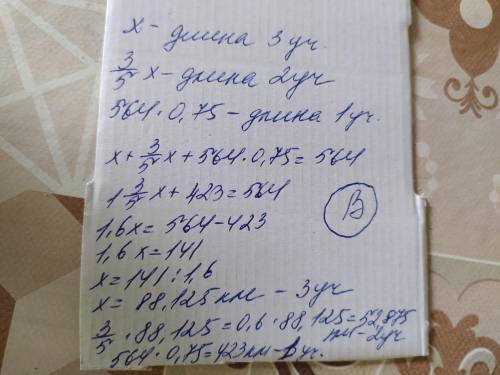 x - длина 3 уч.
3/5 x - длина 2 уч
564 · 0,75 - длина 1 уч.
x + 3/5 x + 564 · 0,75 = 564
1 3/5 x + 423 = 564
1,6x = 564 - 423
В
1,6 x = 141
x = 141 : 1,6
x = 88,125 км - 3 уч
3/5 · 88,125 = 0,6 · 88,125 = 52,875
км - 2 уч
564 · 0,75 = 423 км - 1 уч.